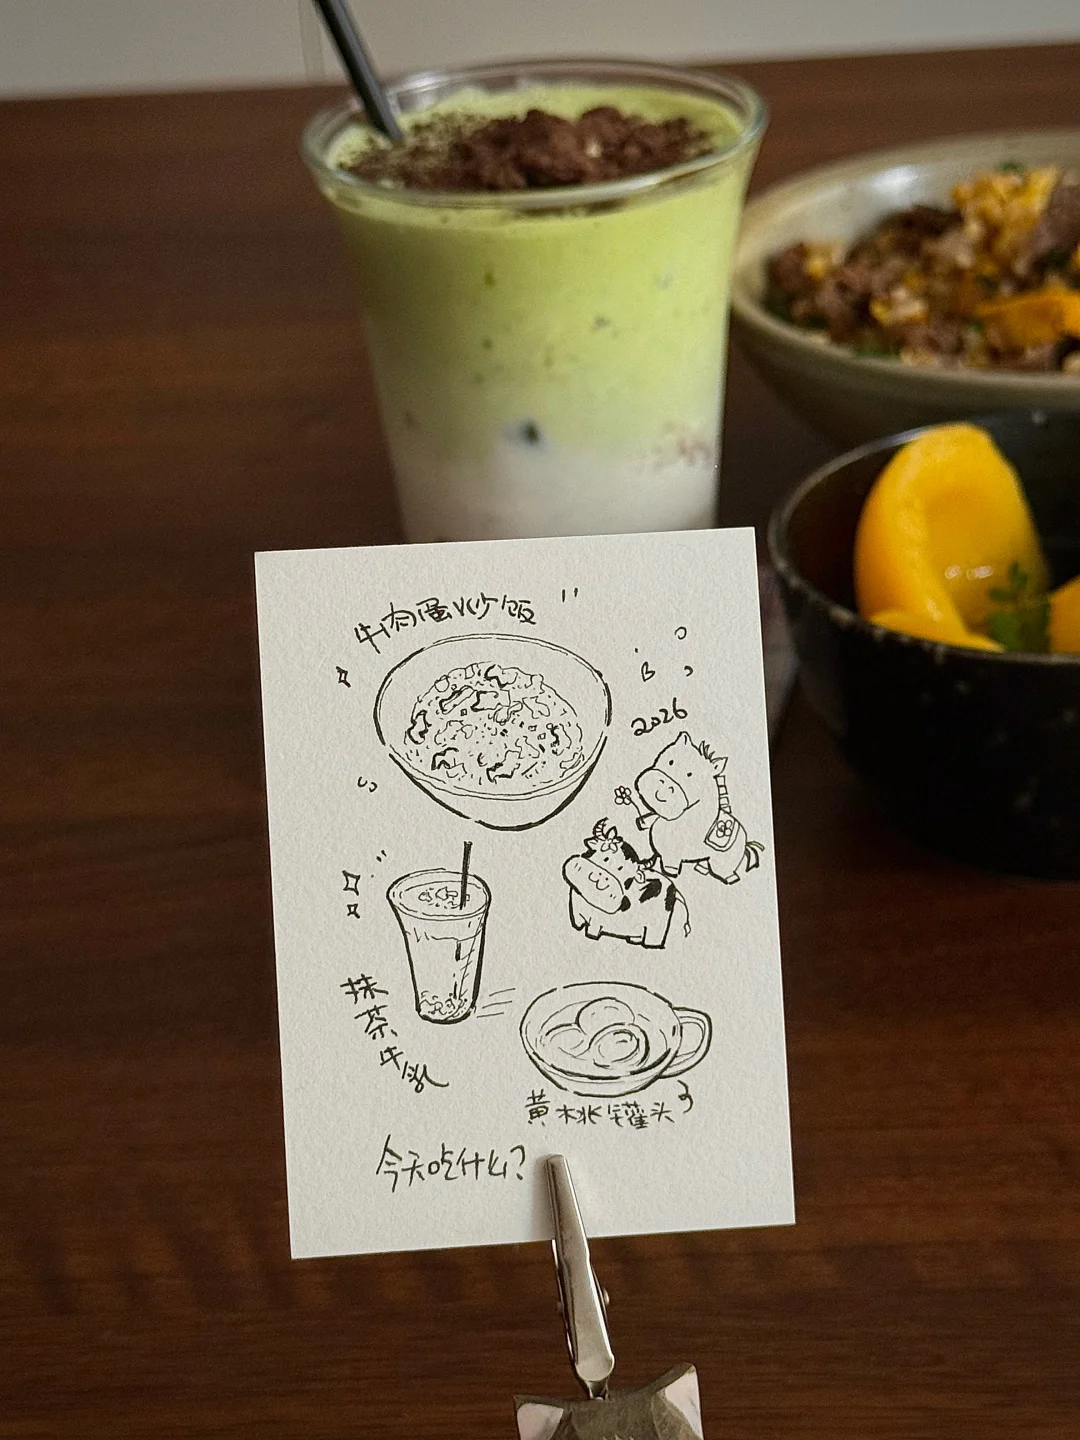 牛肉蛋炒饭
2026
抹茶牛乳
黄桃罐头
今天吃什么?